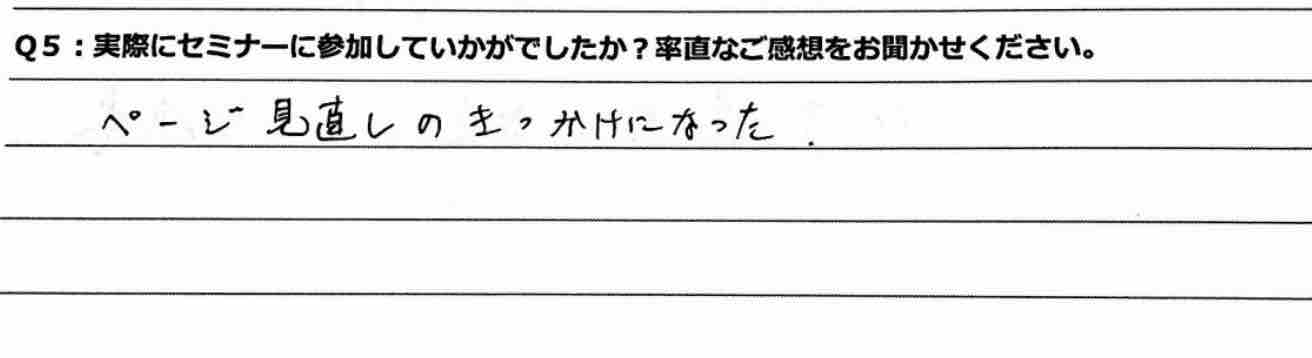 Q5：実際にセミナーに参加していかがでしたか？率直なご感想をお聞かせください。
ページ見直しのきっかけになった.